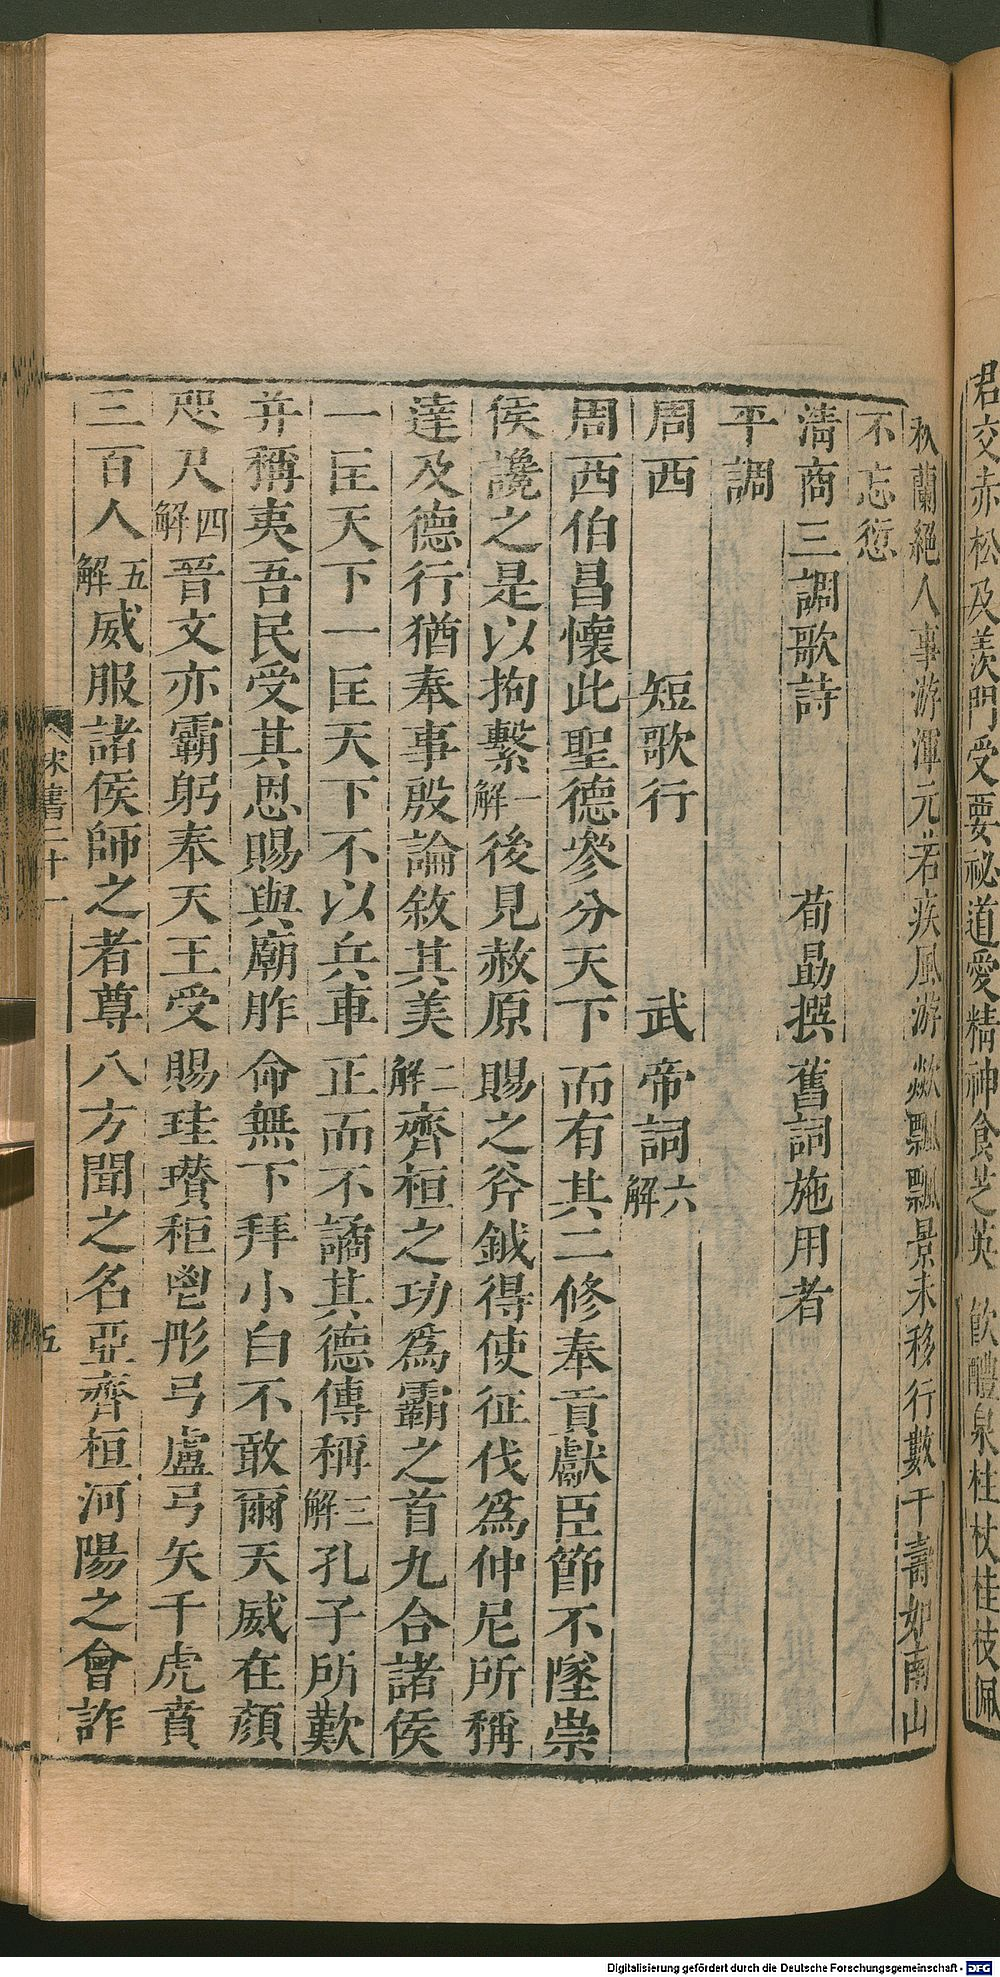 君交赤松及羨門受要祕道愛精神食芝英 飲醴泉柱杖桂枝佩
秋蘭絕人事游渾元若疾風游歘飄飄景未移行數千壽如南山
不忘愆
清商三調歌詩 荀勗撰舊詞施用者
平調
周西 短歌行 武帝詞六解
周西伯昌懷此聖德參分天下而有其二修奉貢獻臣節不墜崇
侯讒之是以拘繫一解後見赦原賜之斧鉞得使征伐爲仲尼所稱
達及德行猶奉事殷論敘其美二解齊桓之功爲霸之首九合諸侯
一匡天下一匡天下不以兵車正而不譎其德傳稱三解孔子所歎
并稱夷吾民受其恩賜與廟胙命無下拜小白不敢爾天威在顏
咫尺四解晉文亦霸躬奉天王受賜珪瓚秬鬯彤弓盧弓矢千虎賁
三百人五解威服諸侯師之者尊八方聞之名亞齊桓河陽之會詐
宋書二十一
五
Digitalisierung gefördert durch die Deutsche Forschungsgemeinschaft - DFG